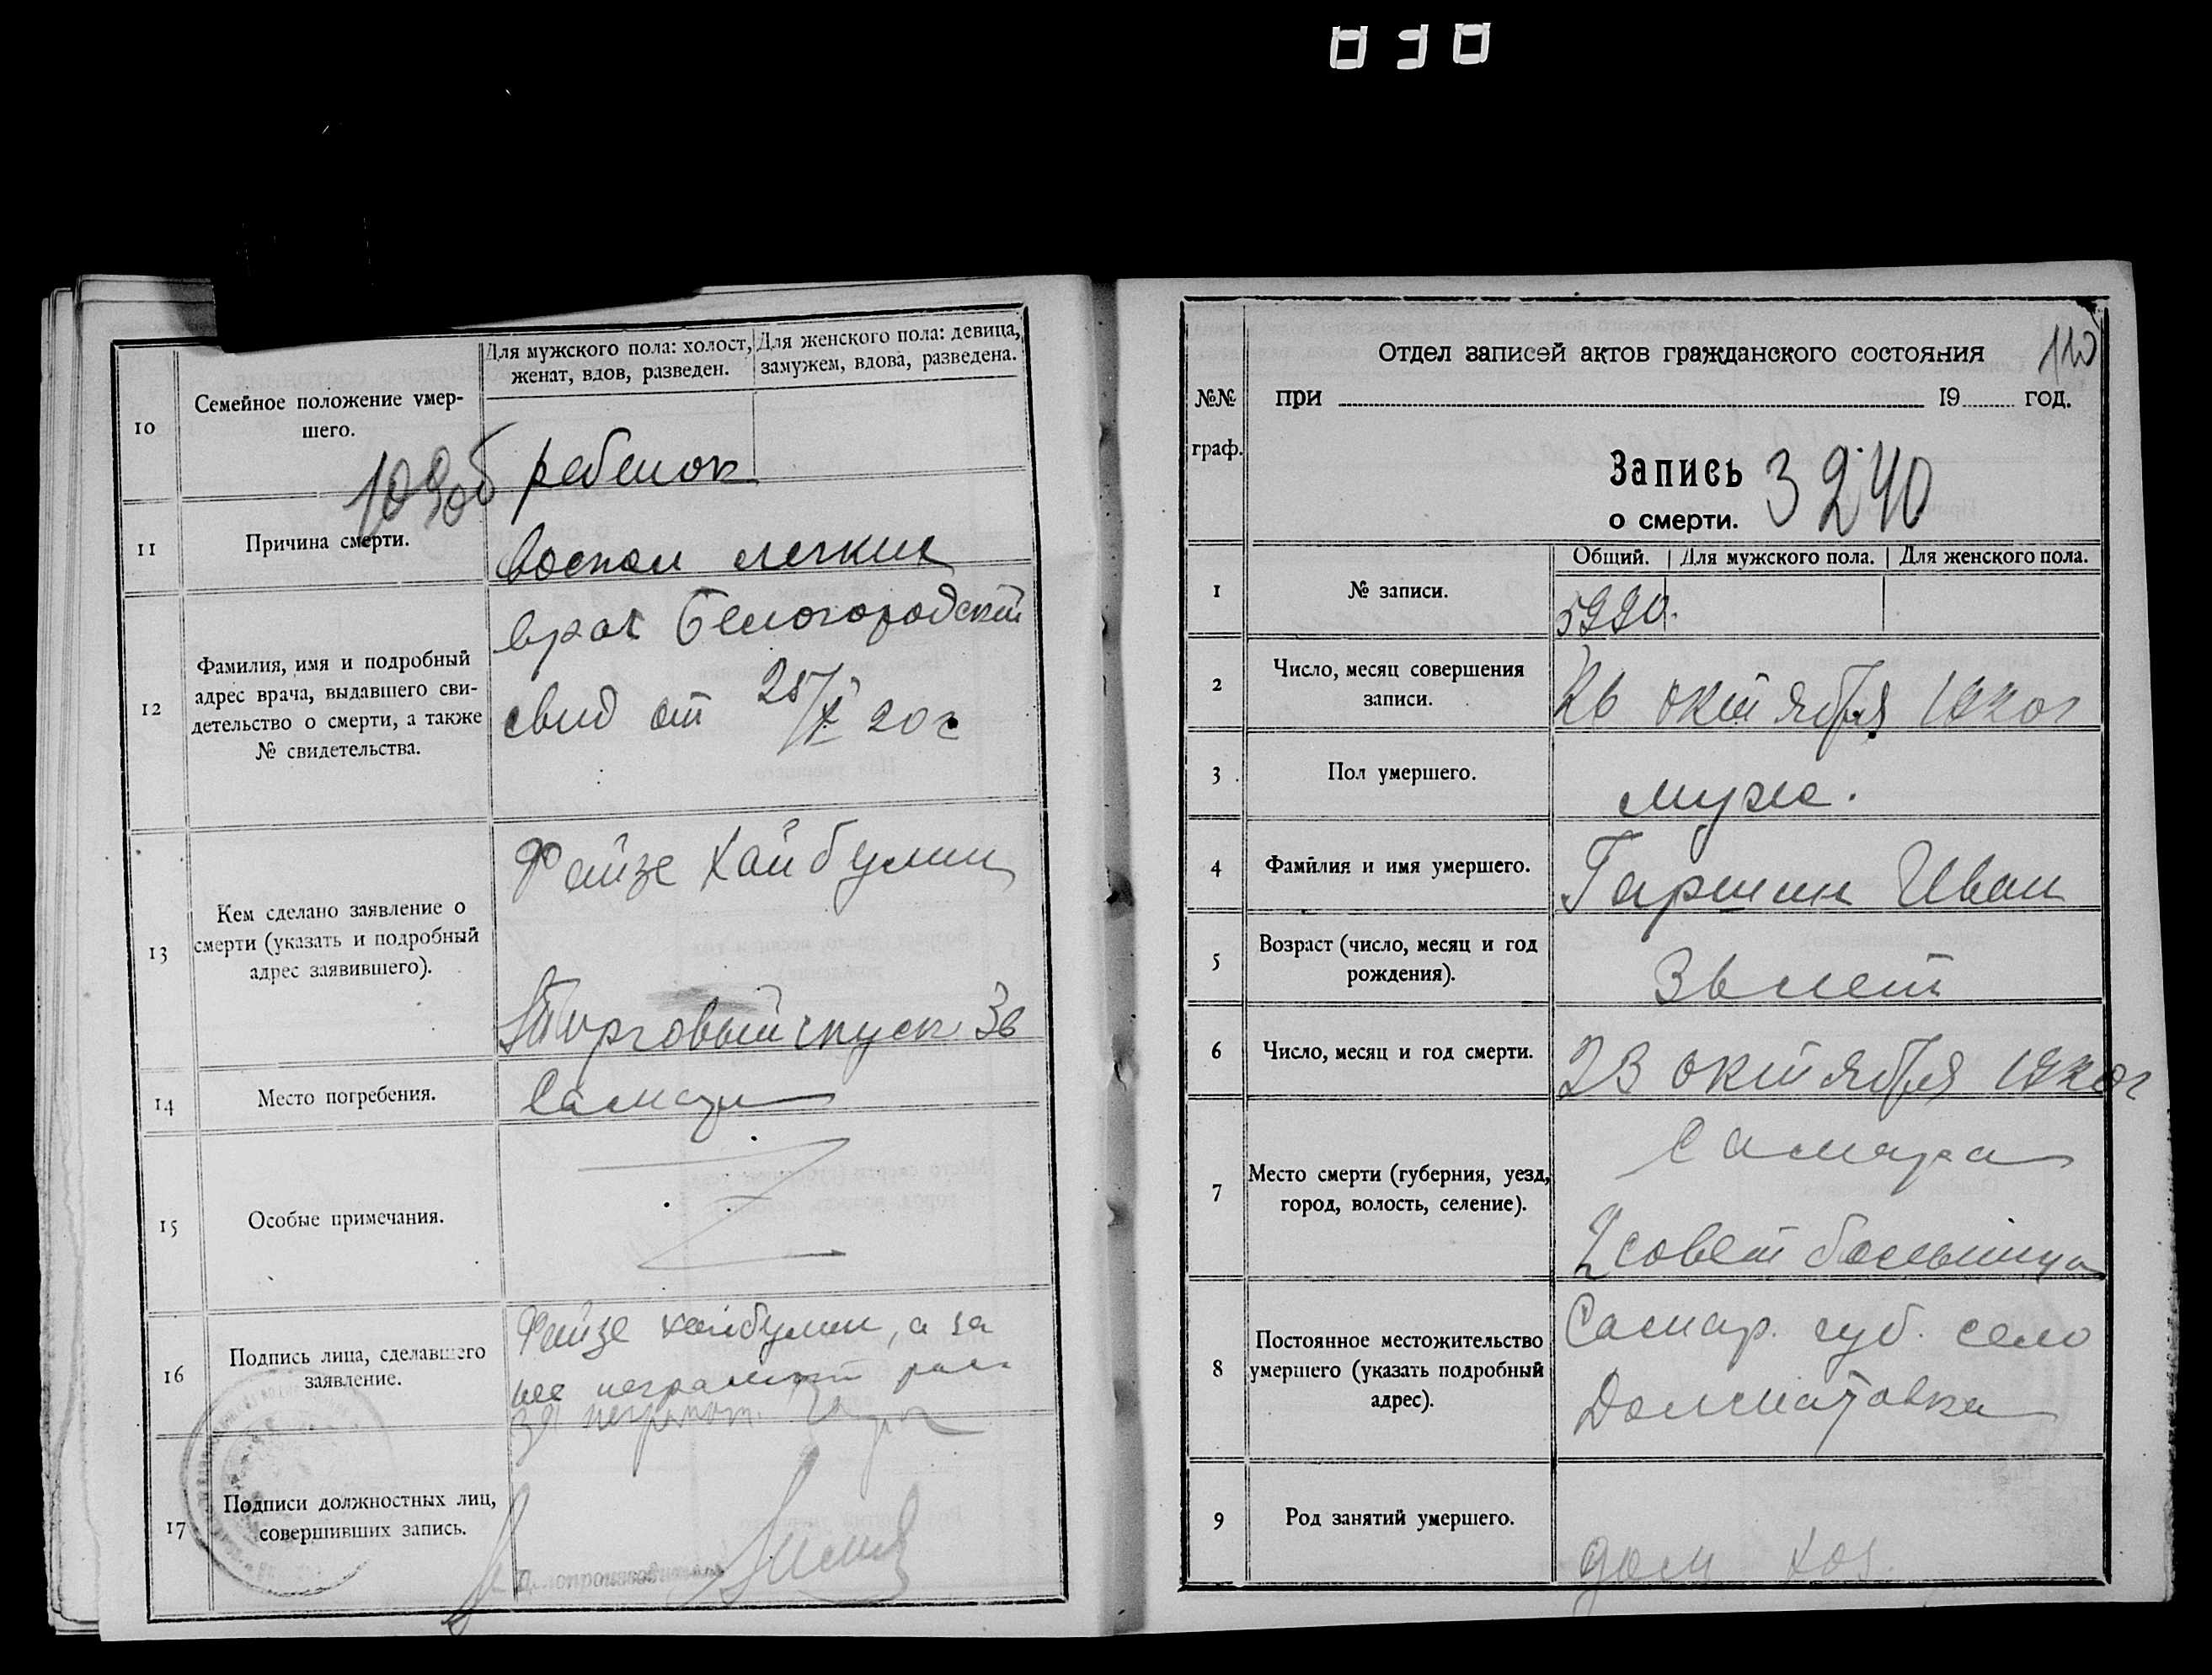 030
Для мужского пола: холост, женат, вдов, разведен.
Для женского пола: девица, замужем, вдова, разведена.
10
Семейное положение умер-
шего.
109об
ребенок
11
Причина смерти.
воспал легких
12
Фамилия, имя и подробный
адрес врача, выдавшего сви-
детельство о смерти, а также
№ свидетельства.
врач Белогородский
свид от 25/X 20 г
13
Кем сделано заявление о
смерти (указать и подробный
адрес заявившего).
Файзе Хайбулин
Торговый спуск 36
14
Место погребения.
Самара
15
Особые примечания.
16
Подпись лица, сделавшего
заявление.
Файзе Хайбулин, а за
нее неграмот рас
за неграмот.
17
Подписи должностных лиц,
совершивших запись.
110
Отдел записей актов гражданского состояния
№№
граф.
при 19 год.
Запись
о смерти.
3240
Общий. Для мужского пола. Для женского пола.
1
№ записи.
5990.
2
Число, месяц совершения
записи.
26 октября 1920 г
3
Пол умершего.
муж.
4
Фамилия и имя умершего.
Гаршин Иван
5
Возраст (число, месяц и год
рождения).
лет
6
Число, месяц и год смерти.
23 октября 1920 г
7
Место смерти (губерния, уезд,
город, волость, селение).
Самара
2 совет больница
8
Постоянное местожительство
умершего (указать подробный
адрес).
Самар. губ. село
Долматовка
9
Род занятий умершего.
дом хоз.